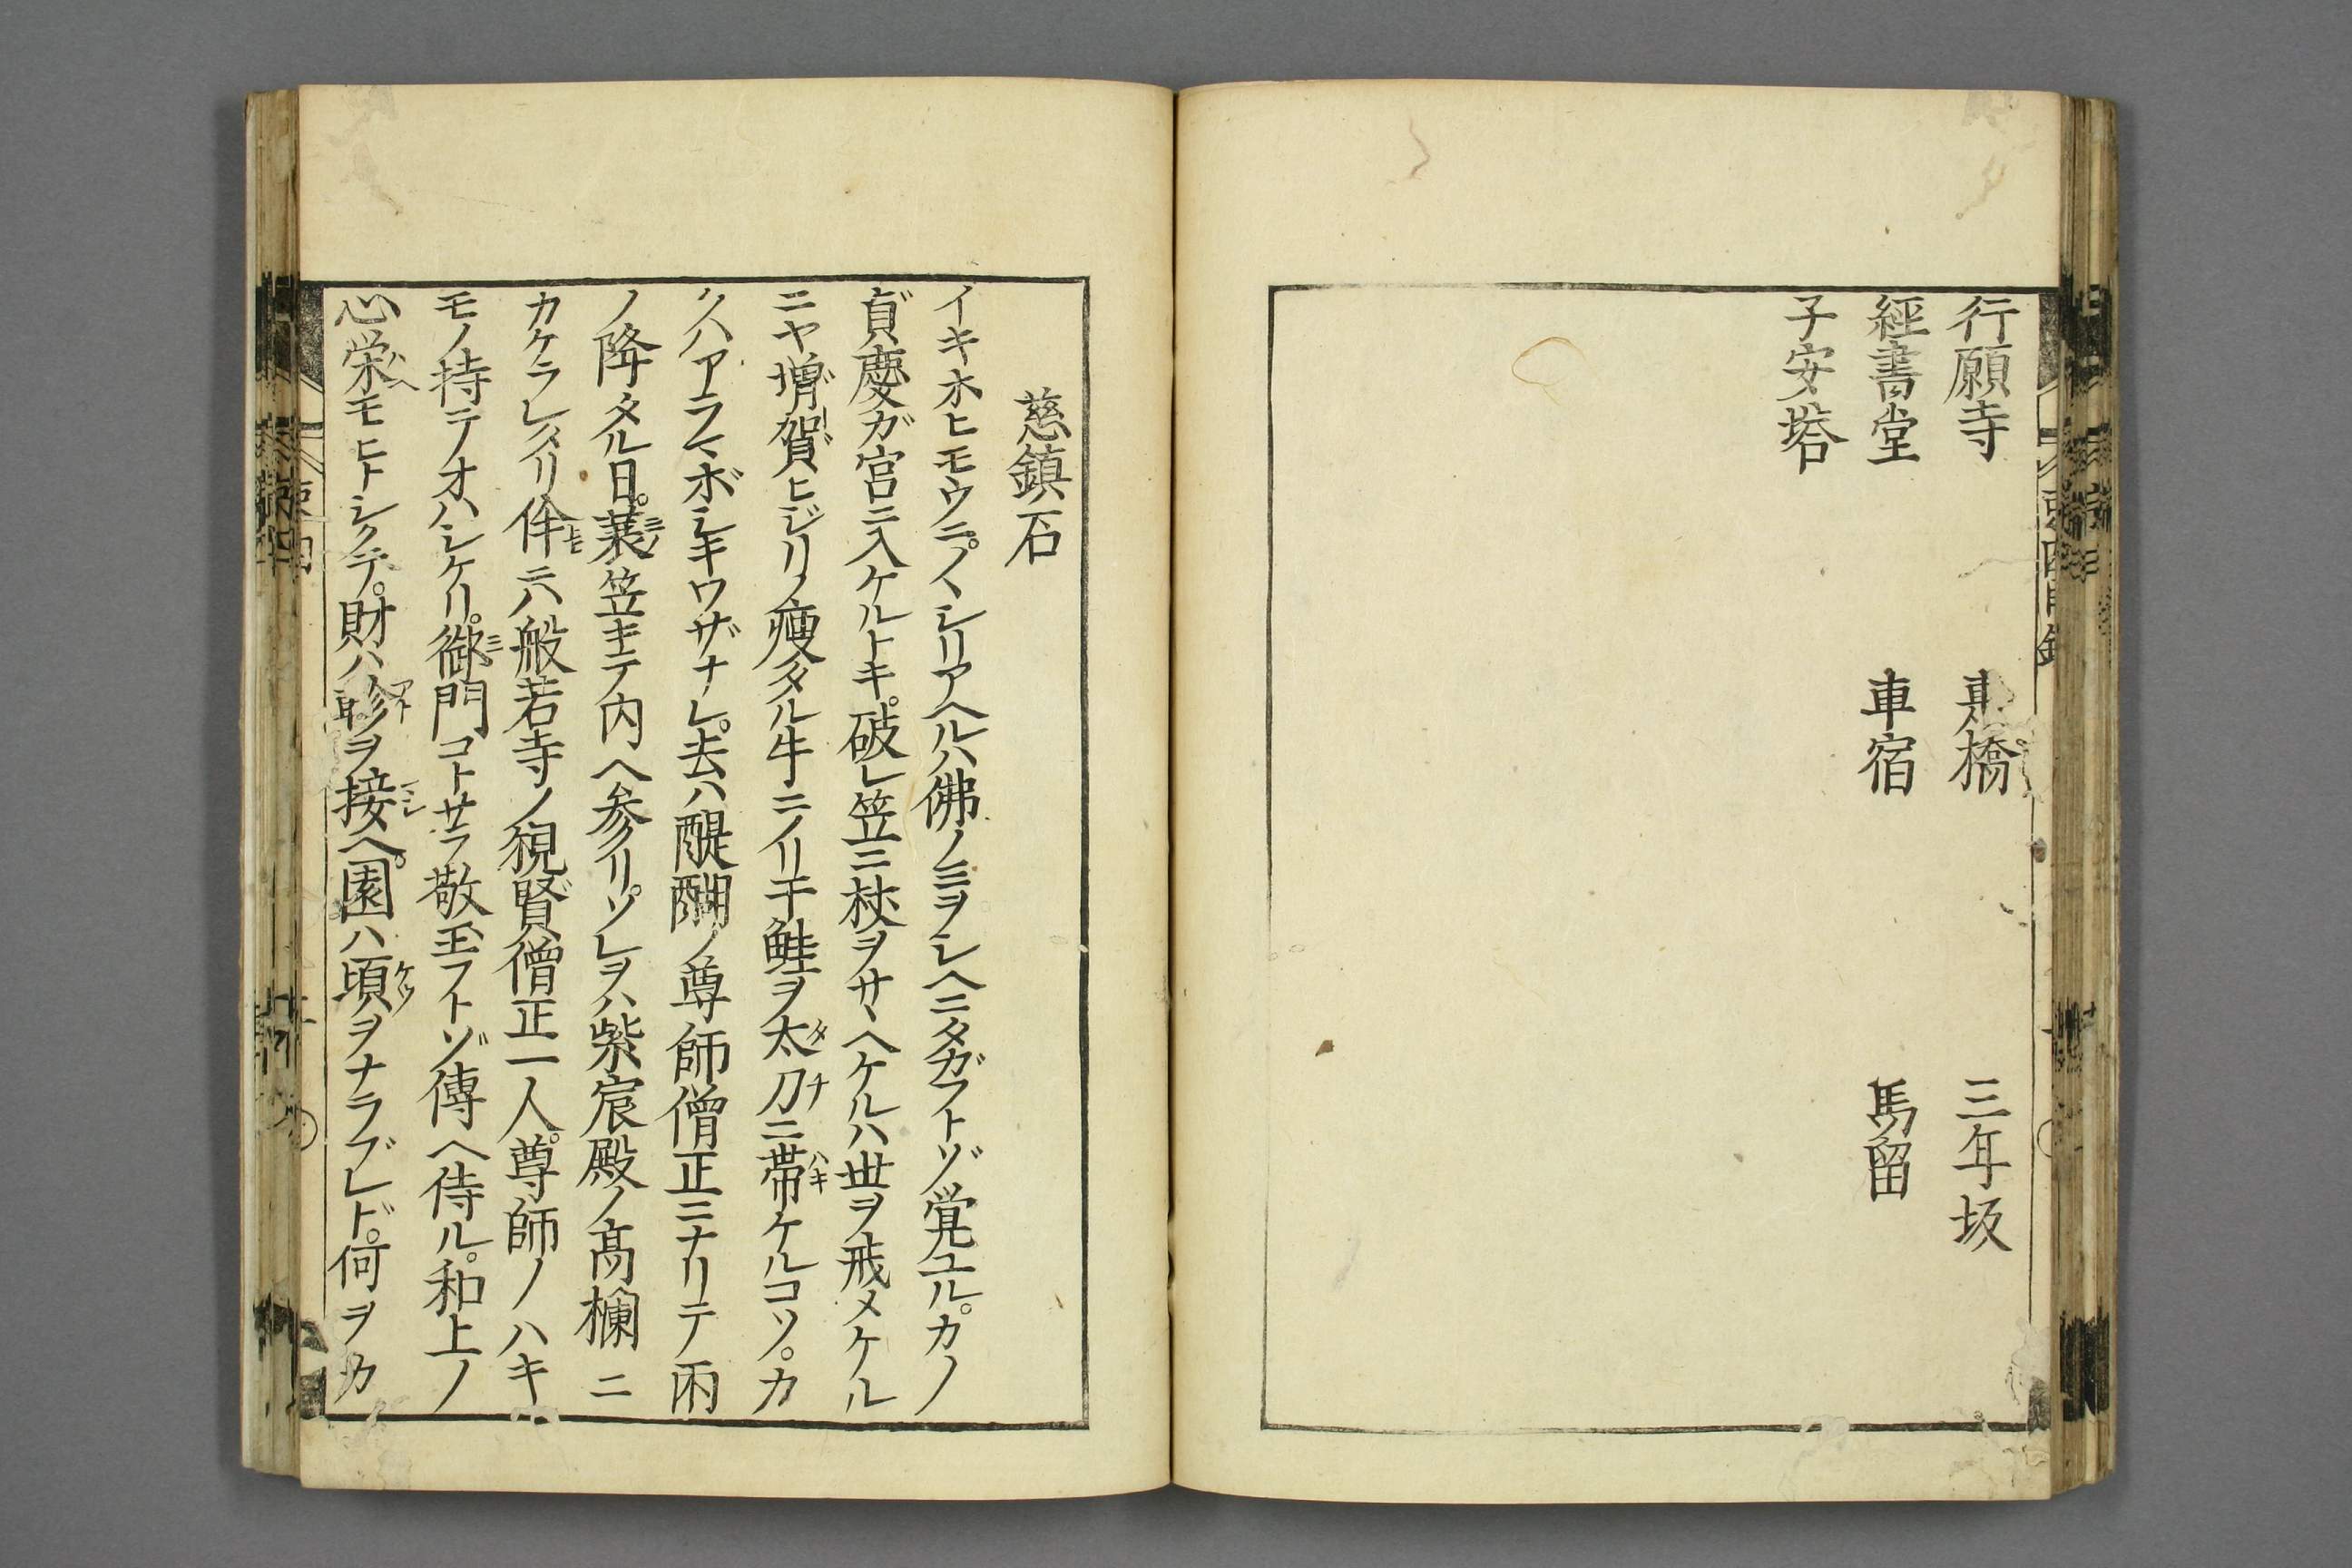 行願寺　橋　三年坂
經書堂　車宿　馬留
子安塔
慈鎮石
イキホヒモウニノヽシリアヘルハ佛ノミヲシヘニタガフトゾ覚ユル。カノ
貞慶ガ宮ニ入ケルトキ。破レ笠ニ杖ヲサヽヘケルハ世ヲ戒メケル
ニヤ増賀ヒジリノ痩タル牛ニノリ干鮭ヲ太刀ニ帯ケルコソ。カ
クハアラマボシキワザナレ。去ハ醍醐ノ尊師僧正ニナリテ雨
ノ降タル日。蓑笠キテ内ヘ参クリ。ソレヲハ紫宸殿ノ髙欄ニ
カケラレタリ伴ニハ般若寺ノ観賢僧正一人。尊師ノハキ
モノ持テオハシケリ。御門コトサラ敬玉フトゾ傳ヘ侍ル。和上ノ
心栄モヒトシクテ。財ハ畛ヲ接ヘ。園ハ頃ヲナラブレド。何ヲカ